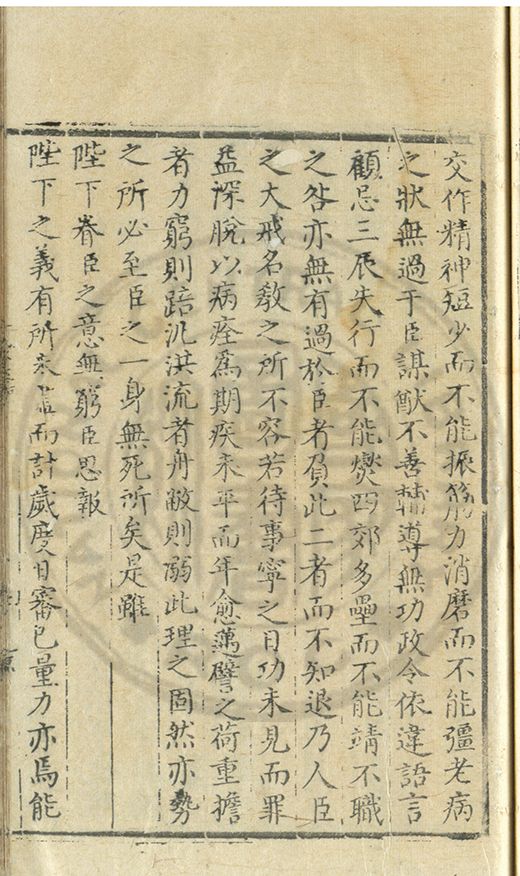 交作精神短少而不能振筋力消磨而不能彊老病
之狀無過于臣謀猷不善輔導無功政令依違語言
顧忌三辰失行而不能燮四郊多壘而不能靖不職
之咎亦無有過於臣者負此二者而不知退乃人臣
之大戒名教之所不容若待事寧之日功未見而罪
益深脫以病痊爲期疾未平而年愈邁譬之荷重擔
者力窮則踣汎洪流者舟敝則溺此理之固然亦勢
之所必至臣之一身無死所矣是雖
陛下眷臣之意無窮臣思報
陛下之義有所未盡而計歲度日審己量力亦焉能